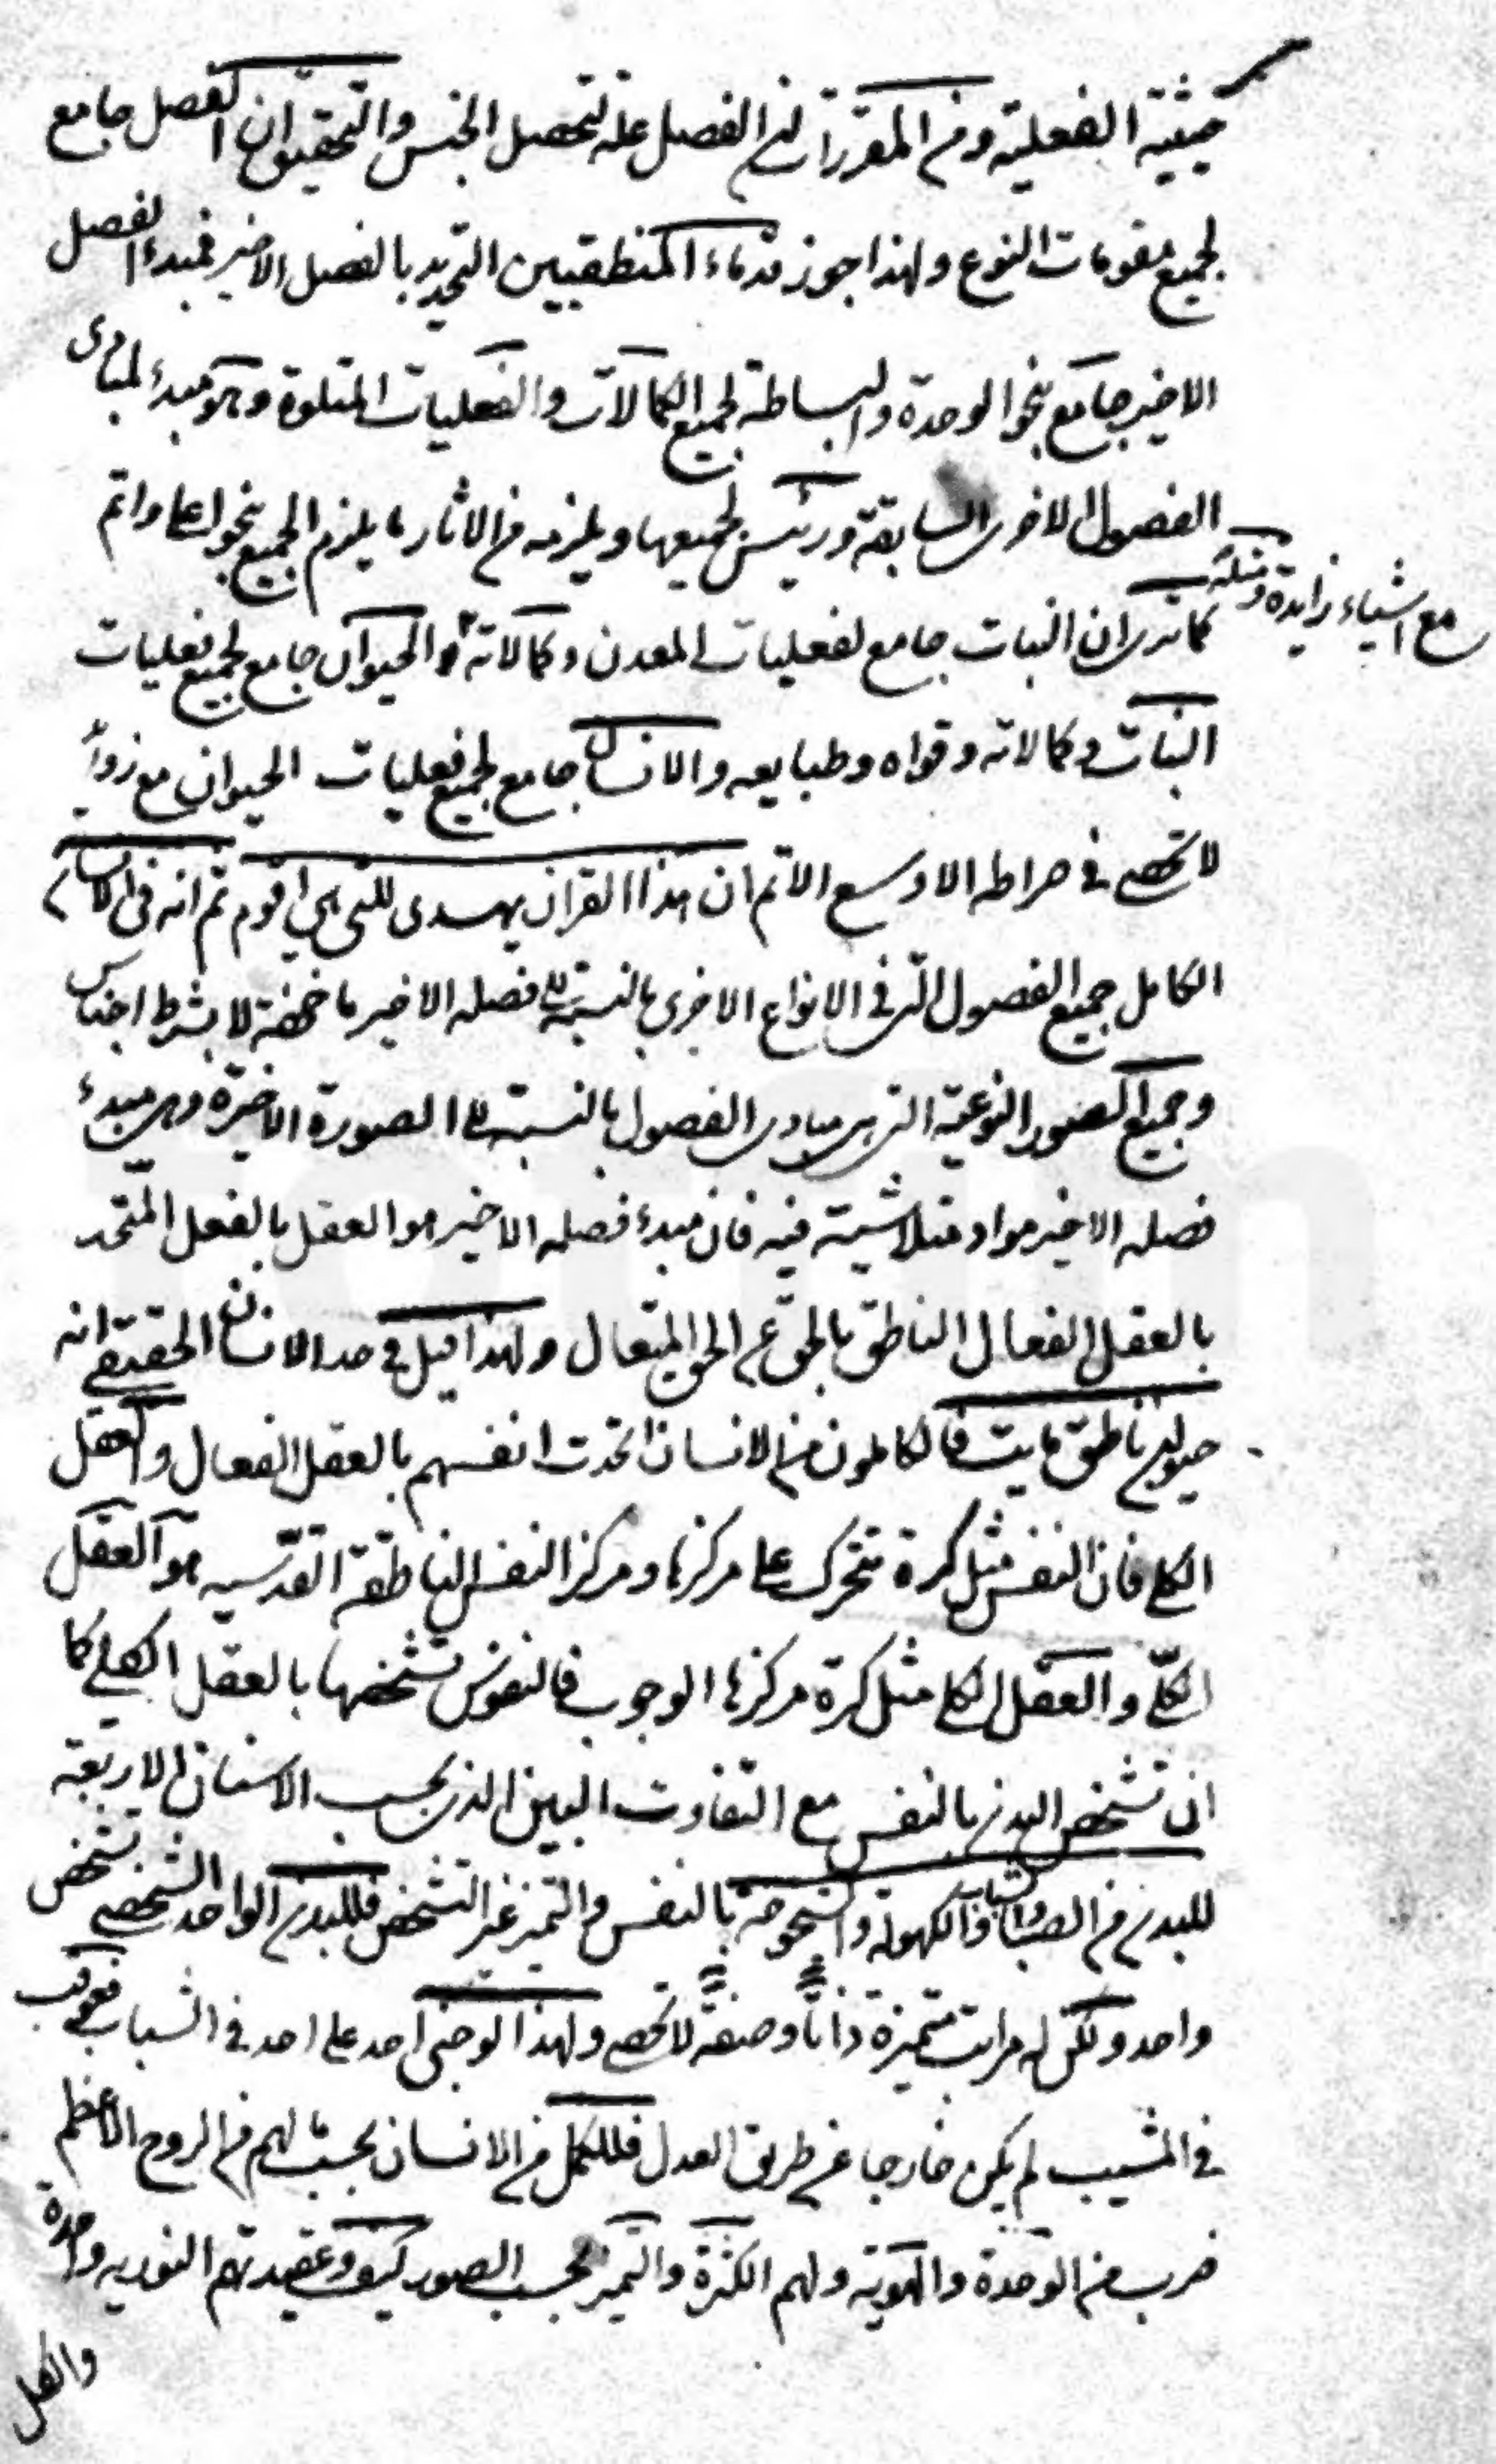 حيثية الفعلية ومن المقررات ان الفصل علة لتحصل الجنس والتحقيق ان الفصل جامع
لجميع مقومات النوع ولهذا جوز قدماء المنطقيين التحديد بالفصل الاخير فمبدء الفصل
الاخير جامع بنحو الوحدة والبساطة لجميع الكمالات والفعليات المتلوة وهو مبدء لمبادى
الفصول الاخرى السابقة ورئيس لجميعها ويلزمه من الاثار ما يلزم الجميع بنحو اعلا واتم
مع اشياء زايدة ومثله
كما ترى ان النبات جامع لفعليات المعدن وكمالاته والحيوان جامع لجميع فعليات
النبات وكمالاته وقواه وطبايعه والانسان جامع لجميع فعليات الحيوان مع زوائد
لا تحصى في صراطه الاوسع الاتم ان هذا القران يهدى للتي هي اقوم ثم انه في الانسان
الكامل جميع الفصول التى في الانواع الاخرى بالنسبة الى فصله الاخير ماخوذة لا بشرط اجناس
وجميع الصور النوعية التى هى مبادى الفصول بالنسبة الى الصورة الاخيرة وهى مبدء
فصله الاخير مواد متلاشية فيه فان مبدء فصله الاخير هو العقل بالفعل المتحد
بالعقل الفعال الناطق بالحق عن الحق المتعال ولهذا قيل في حد الانسان الحقيقي انه
حيوان ناطق مايت فالكاملون من الانسان اتحدت انفسهم بالعقل الفعال والعقل
الكلي فان النفس مثل كرة تتحرك على مركزها ومركز النفس الناطقة القدسيه هو العقل
الكلي والعقل الكلي مثل كرة مركزها الوجوب فالنفوس تشخصها بالعقل الكلي كما
ان تشخص البدن بالنفس مع التفاوت البين الذى بحسب الاسنان الاربعة
للبدن من الصبا والشباب والكهولة والشيخوخة بالنفس والتميز غير التشخص فللبدن الواحد الشخصي تشخص
واحد ولكن له مراتب متميزة ذاتاً وصفةً لا تحصى ولهذا لو جنى احد على احد في الشباب فعوقب
في المشيب لم يكن خارجا عن طريق العدل فللكمل من الانسان بحسب ما لهم من الروح الاعظم
ضرب من الوحدة والهوية ولهم الكثرة والتميز بحسب الصور كيف وعقيدتهم النوريه واحدة
والكل